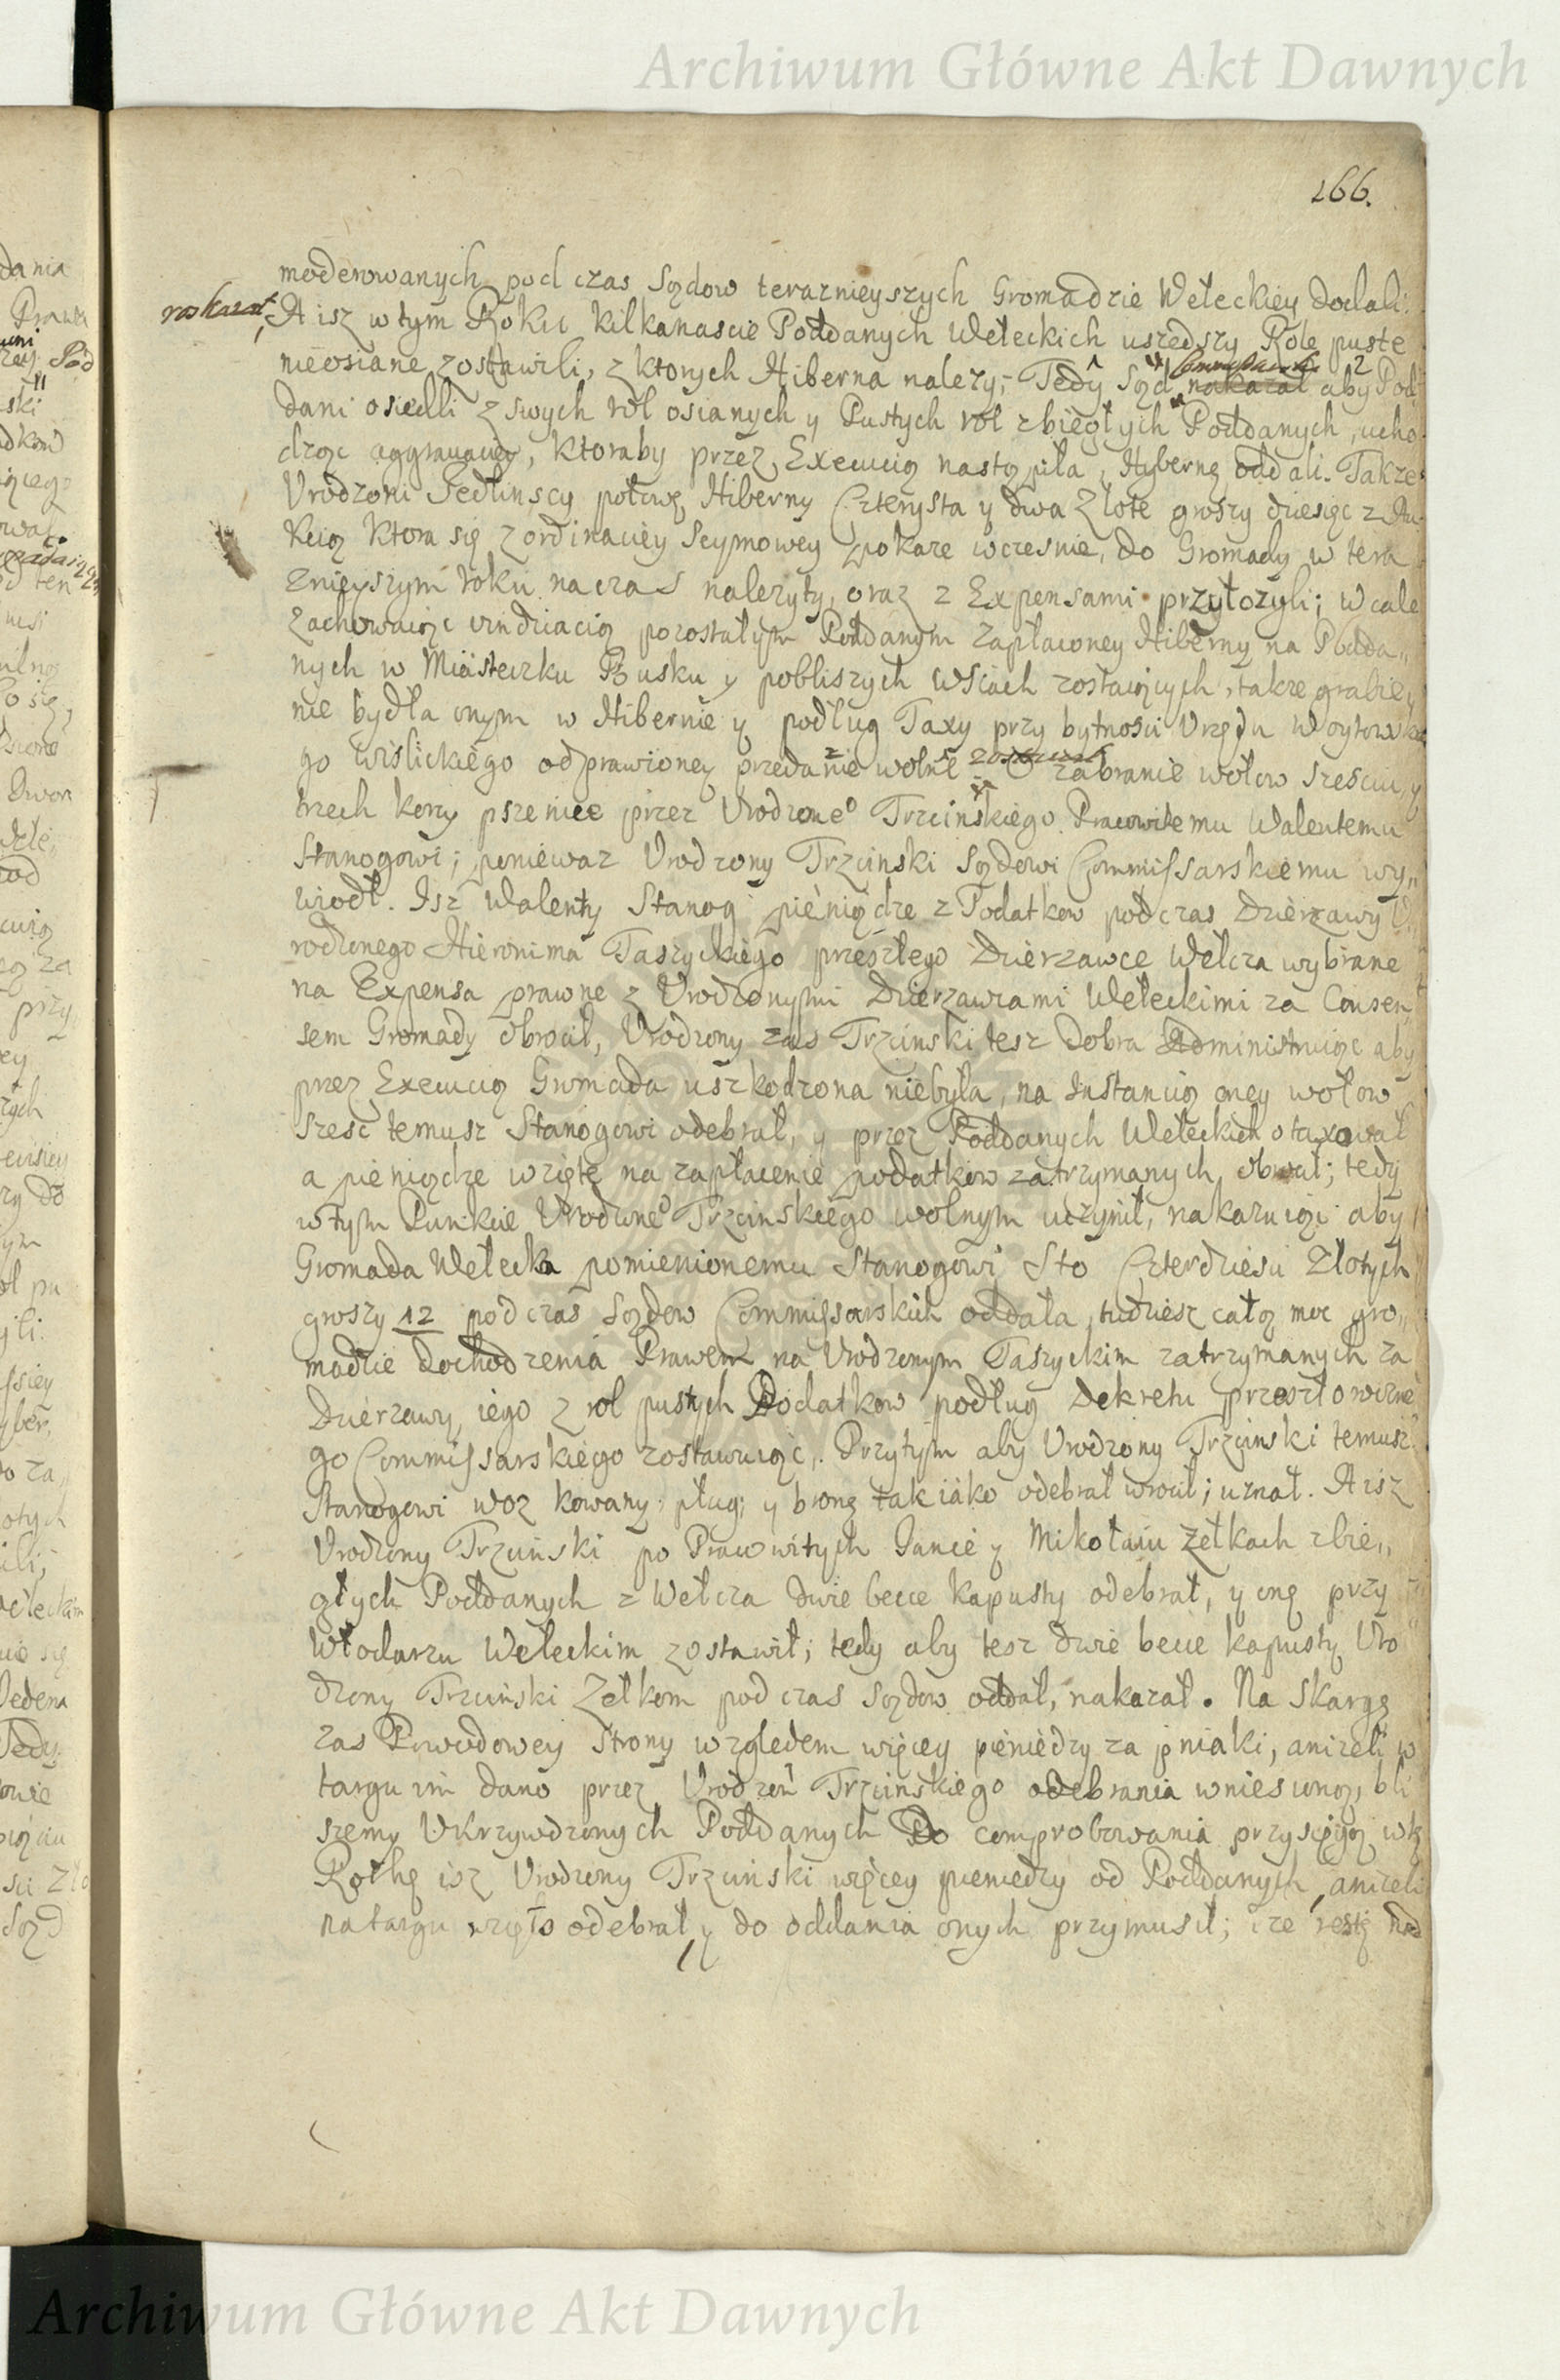 Archiwum Główne Akt Dawnych
166.
moderowanych pod czas Sądow teraznieyszych Gromadzie Wełeckiey dodali:
nakazał, A isz w tym Roku kilkanascie Poddanych Wełeckich uszedszy Role puste
nieosiane zostawili, z ktorych Hiberna nalezy, Tedy Sąd nakazał aby Pod
dani osiedli z swych rol osianych y Pustych rol zbiegłych Poddanych, ucho
dząc aggrawacyą, ktoraby przez Execucią nastąpiła, Hybernę oddali. Takze
Vrodzoni Siedlinscy połowę Hiberny Czterysta y dwa Złote groszy dziesięc z Au
kcią ktora się z ordinaciey Seymowey pokaze wczesnie, do Gromady w tera
znieyszym roku na czas nalezyty, oraz z Expensami przyłozyli; wcale
Zachowuiąc vindicacią pozostałym Poddanym zapłaconey Hiberny na Podda„
nych w Miasteczku Busku y pobliszych wsiach zostaiących, takze grabie„
nie bydła onym w Hibernie y podług Taxy przy bytnosci Vrzędu Woytowskie
go Wislickiego odprawioney przedanie wolne zabranie wołow szesciu, y
trzech korcy pszenice przez Vrodzoneo Trzcinskiego Pracowitemu Walentemu
Stanogowi; poniewaz Vrodzony Trzcinski Sądowi Commissarskiemu wy„
wiodł. Isz Walenty Stanog pieniądze z Podatkow podczas Dzierzawy V„
rodzonego Hieronima Taszyckiego przeszłego Dzierzawce Wełcza wybrane
na Expensa prawne z Vrodzonymi Dzierzawcami Wełeckimi za Consen„
sem Gromady obrocił, Vrodzony zas Trzcinski tesz Dobra Administruiąc aby
przez Execucią Gromada uszkodzona niebyła, na Instancią oney wołow
szesc temusz Stanogowi odebrał, y przez Poddanych Wełeckich otaxował
a pieniądze wzięte na zapłacenie podatkow zatrzymanych obrocił; tedy
w tym Punkcie Vrodzoneo Trzcinskiego wolnym uczynił, nakazuiąc aby
Gromada Wełecka pomienionemu Stanogowi Sto Czterdziesci Złotych
groszy 12 podczas Sądow Commissarskich oddała, tudziesz całą moc gro„
madzie dochodzenia Prawem na Vrodzonym Taszyckim zatrzymanych za
Dzierzawy iego z rol pustych Podatkow podług Dekretu przeszłowiczne
go Commissarskiego zostawuiąc. Przytym aby Vrodzony Trzcinski temusz
Stanogowi woz kowany, pług, y bronę tak iako odebrał wrocił; uznał. A isz
Vrodzony Trzcinski po Pracowitych Iancie y Mikołaiu Zełkach zbie„
głych Poddanych z Wełcza dwie becce kapusty odebrał, y onę przy
Włodarzu Wełeckim zostawił; tedy aby tesz dwie becce kapusty Vro
dzony Trzcinski Zełkom pod czas Sądow oddał, nakazał. Na skargę
zas Powodowey Strony względem więcey pieniędzy za ięniaki, anizeli w
targu im dano przez Vrodzon Trzcinskiego odebrania wniesioną, bli
szemy Vkrzywdzonych Poddanych Do comprobowania przysięgą w tę
Rothę isz Vrodzony Trzcinski więcey pieniedzy od Poddanych, anizeli
na targu wzięto odebrał, y do oddania onych przymusił; i ze resztę nad
Archiwum Główne Akt Dawnych